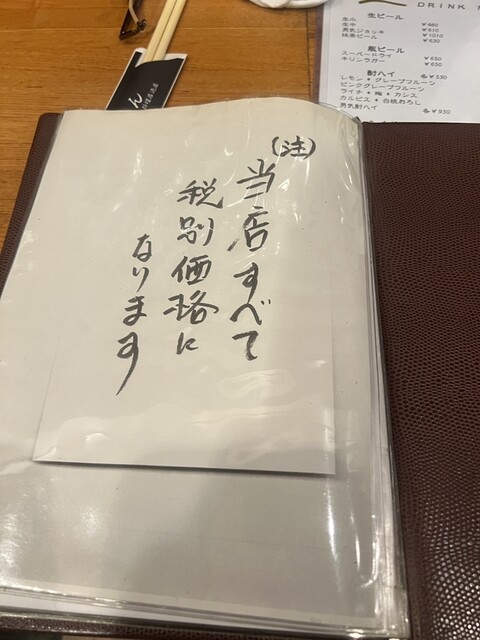 (注)
当店すべて
税別価格に
なります
DRINK
生ビール
生小 ¥480
生中 ¥610
男気ジョッキ ¥1010
抹茶ビール ¥630
瓶ビール
スーパードライ ¥650
キリンラガー ¥650
酎ハイ
各¥530
レモン • グレープフルーツ
ピンクグレープフルーツ
ライチ • 梅 • カシス
カルピス • 白桃おろし
男気酎ハイ 各¥950
ん